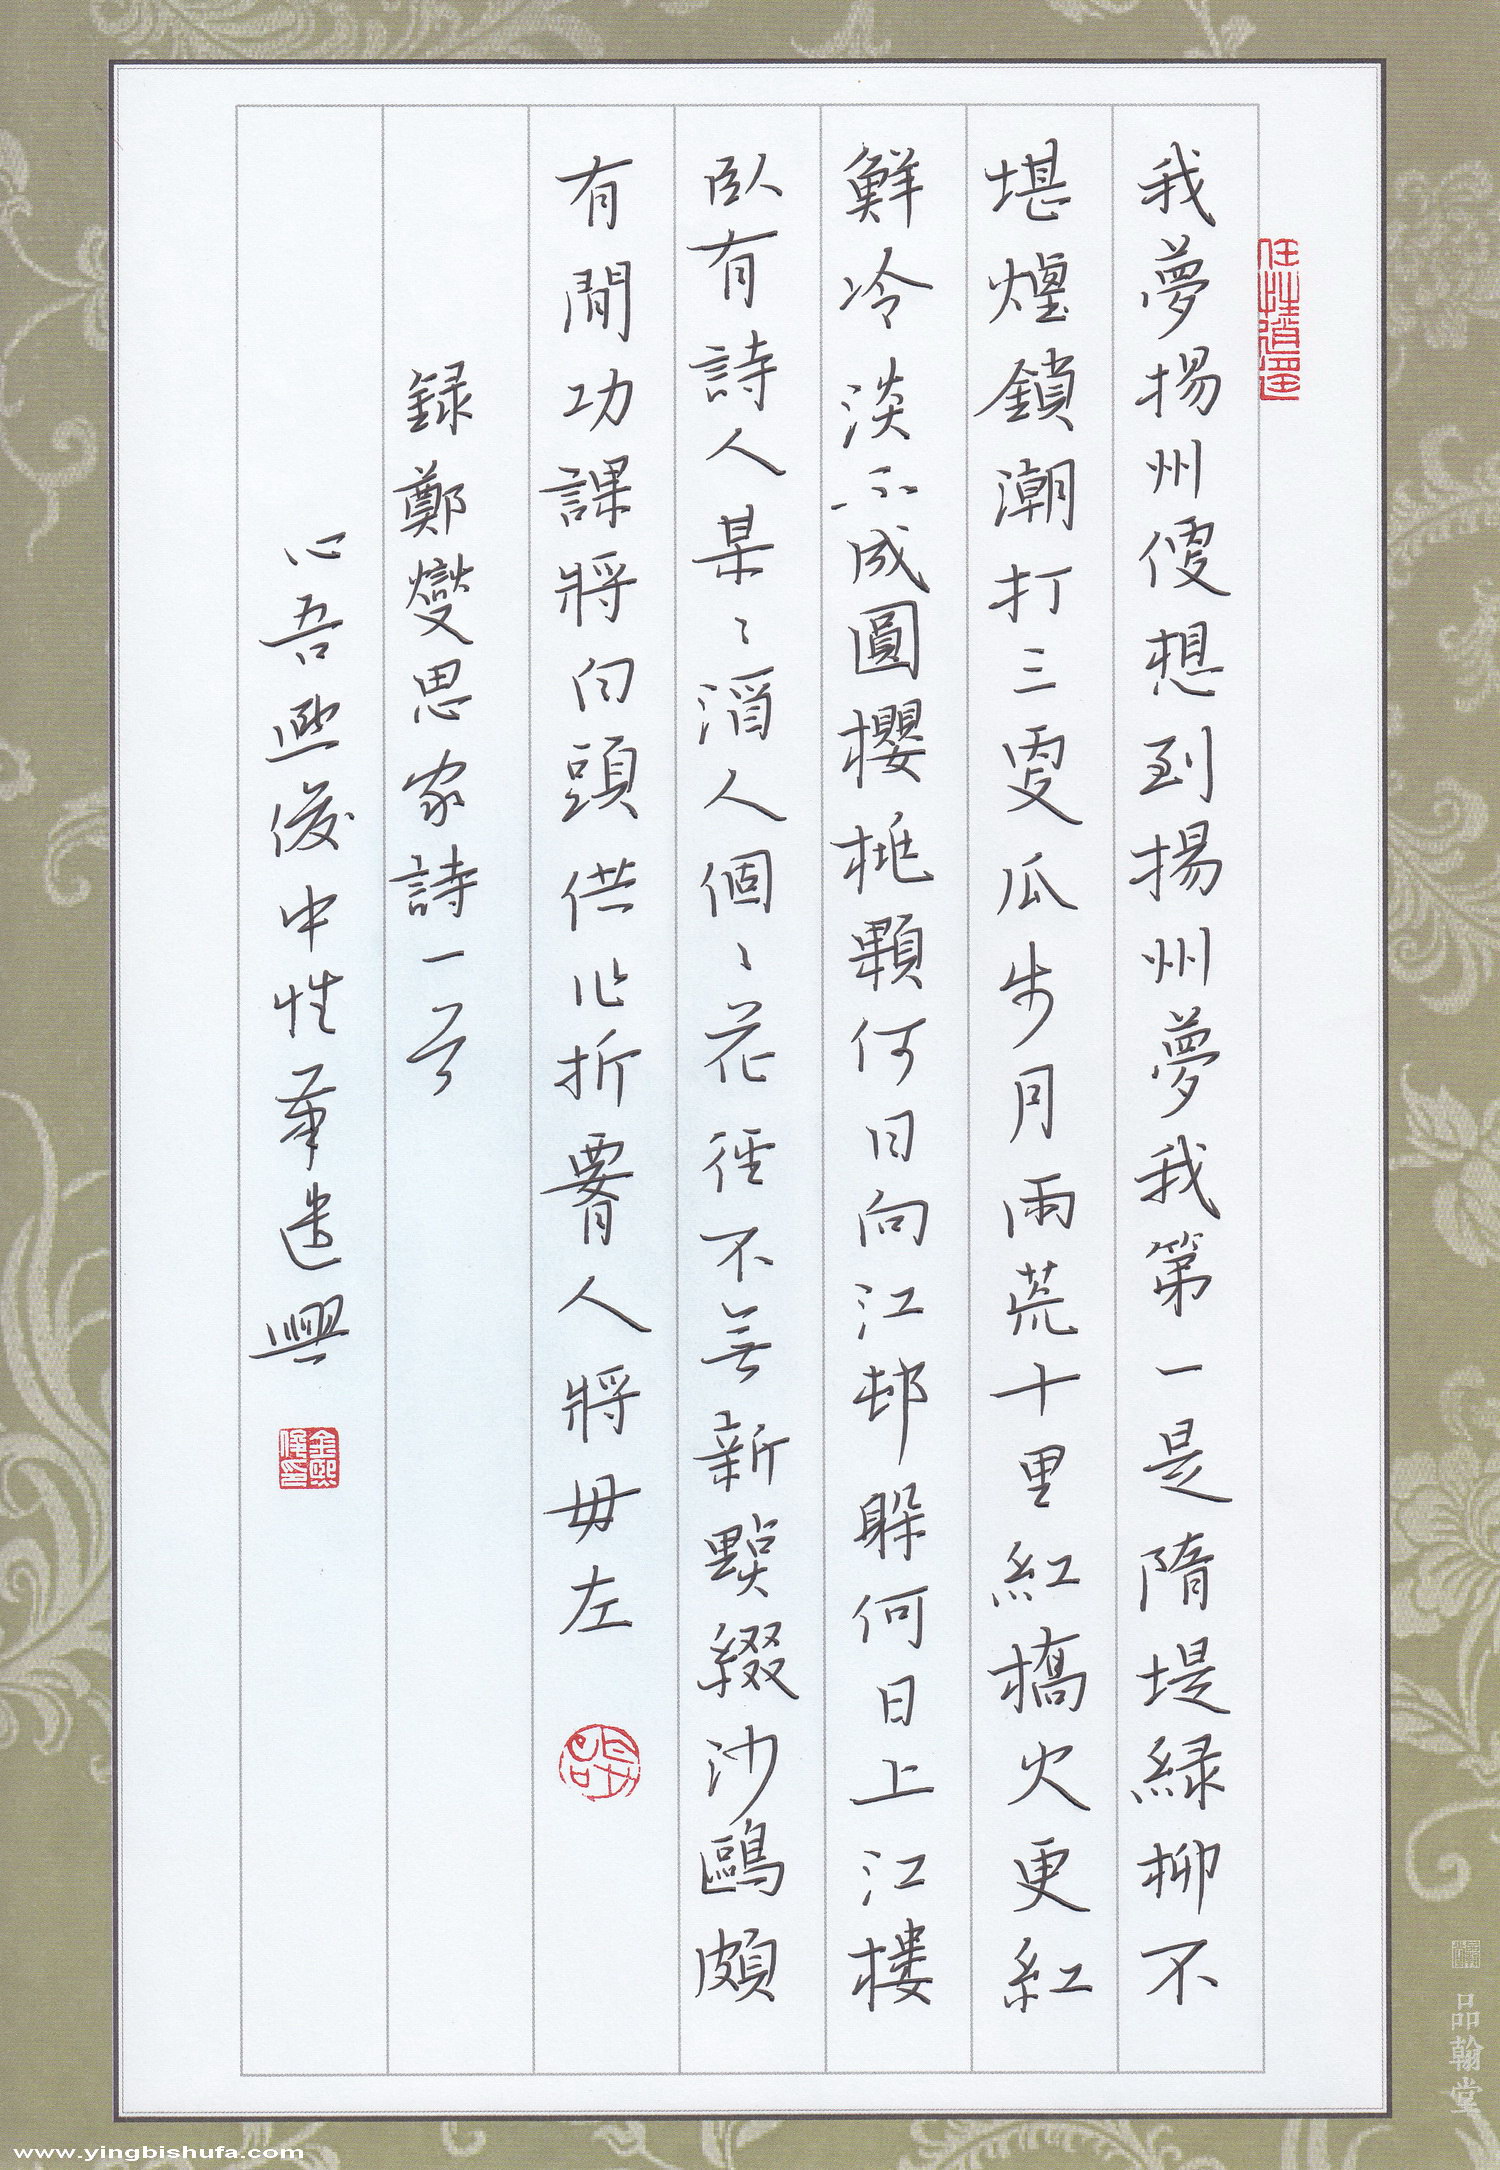 我夢揚州便想到揚州夢我第一是隋堤綠柳不
堪煙鎖潮打三更瓜步月雨荒十里紅橋火更紅
鮮冷淡不成圓櫻桃顆何日向江邨躲何日上江樓
臥有詩人某〻酒人個〻花徑不無新點綴沙鷗頗
有閒功課將白頭供作折腰人將毋左
録鄭燮思家詩一首
心吾熙俊中性筆遣興
金熙俊印
品翰堂
www.yingbishufa.com